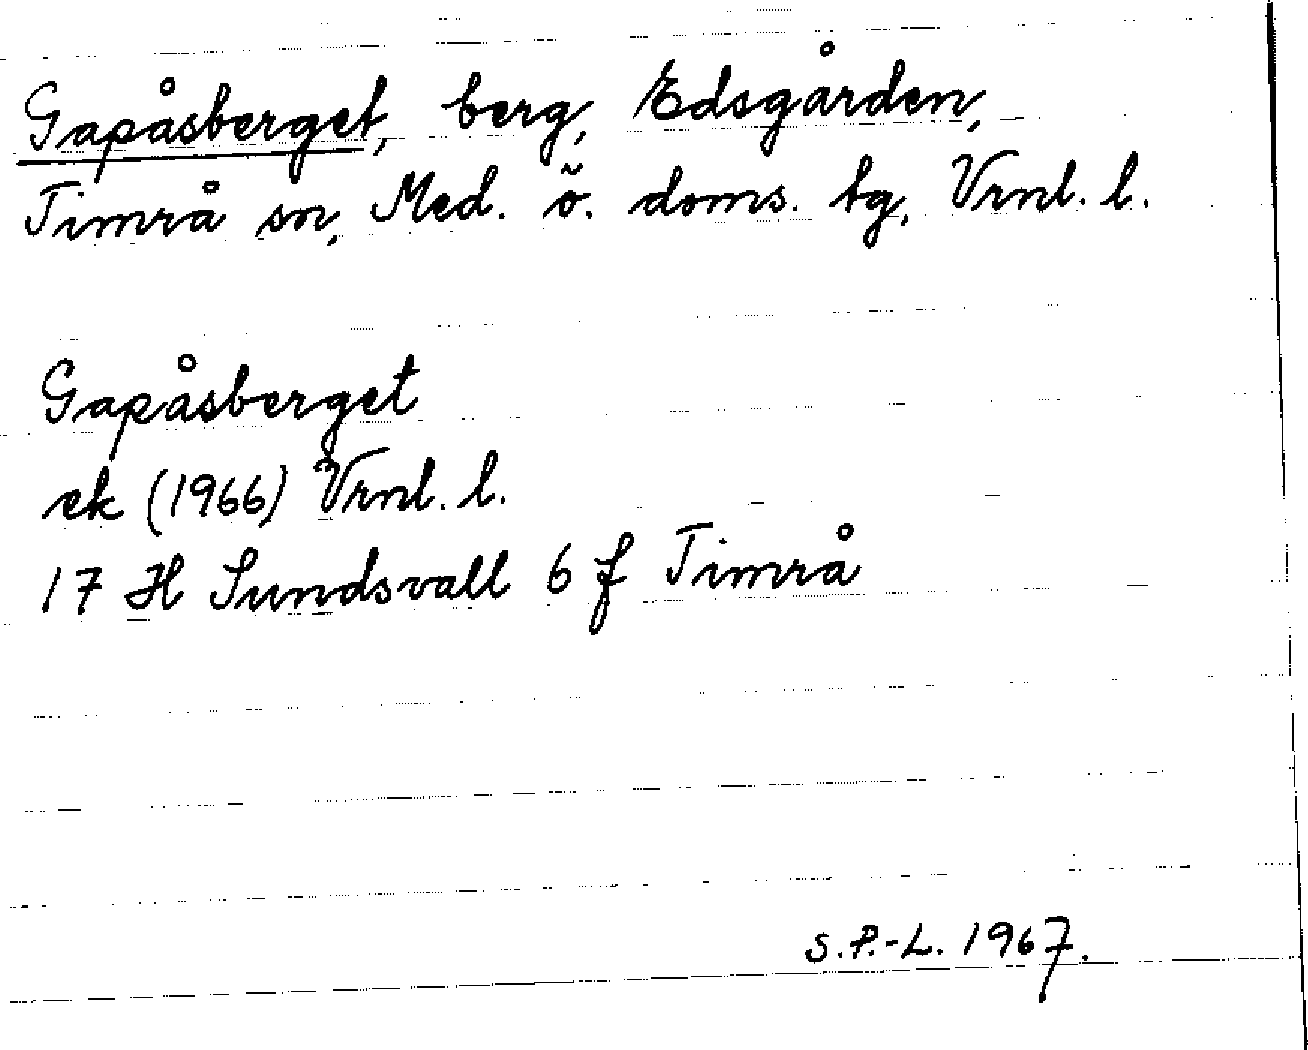 Gapåsberget, berg, Edsgården,
Timrå sn, Med. ö. doms. tg, Vrnl. l.
Gapåsberget
ek (1966) Vrnl. l.
17 H Sundsvall 6 f Timrå
S.P.-L. 1967.